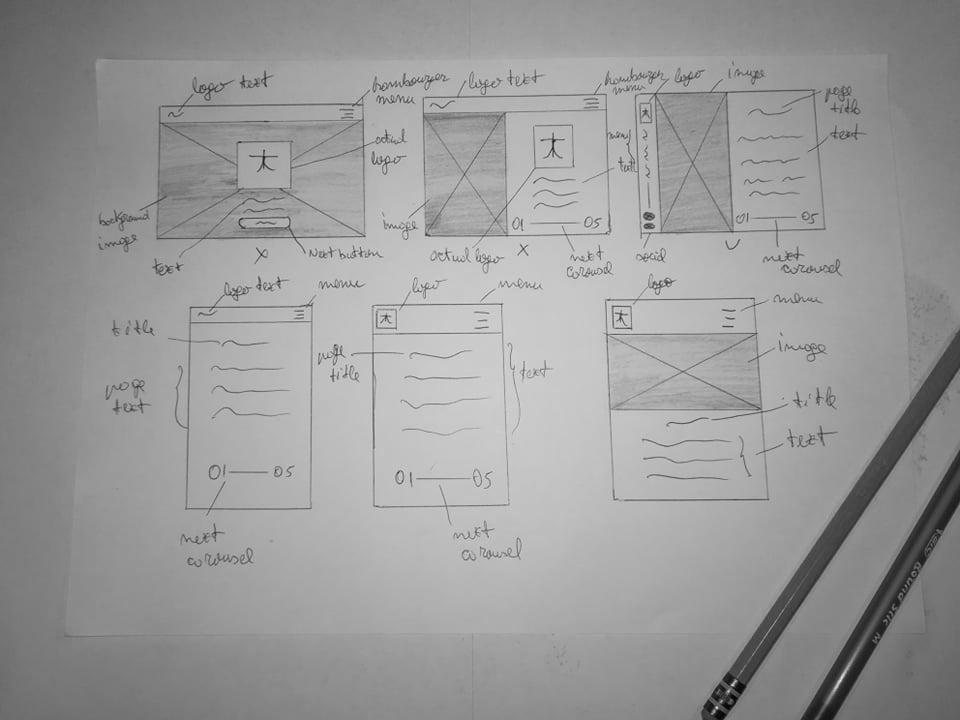 logo text
hambourger
menu
actual
logo
background
image
text
Next button
X
logo text
hambourger
menu
image
actual logo
text
01
05
next
carousel
X
logo
image
page
title
menu
text
01
05
social
next
carousel
V
logo text
menu
title
page
text
01
05
next
carousel
logo
menu
page
title
text
01
05
next
carousel
logo
menu
image
title
text